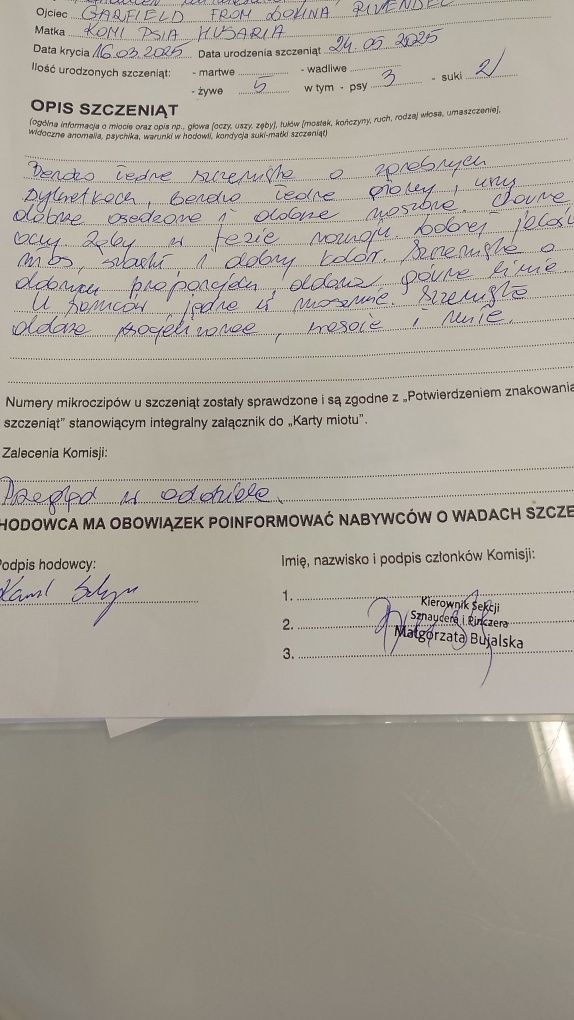 Ojciec GARFIELD FROM DOLINA RIVENDEL
Matka KOMI PSIA HUSARIA
Data krycia 16.03.2025 Data urodzenia szczeniąt 24.05.2025
Ilość urodzonych szczeniąt: - martwe - wadliwe
- żywe 5 w tym - psy 3 - suki 2
OPIS SZCZENIĄT
(ogólna informacja o miocie oraz opis np., głowa [oczy, uszy, zęby], tułów [mostek, kończyny, ruch, rodzaj włosa, umaszczenie],
widoczne anomalia, psychika, warunki w hodowli, kondycja suki-matki szczeniąt)
Bardzo ładne szczenięta o
sylwetkach, bardzo ładne głowy, uszy
dobrze osadzone i dobrze noszone.
oczy. Zęby w fazie rozwoju. Dobrej
włos, i dobry kolor. Szczenięta o
dobrych proporcjach, górne linie
U jedne w Szczenięta
i
Numery mikroczipów u szczeniąt zostały sprawdzone i są zgodne z „Potwierdzeniem znakowania
szczeniąt” stanowiącym integralny załącznik do „Karty miotu”.
Zalecenia Komisji:
Przegląd w oddziale.
HODOWCA MA OBOWIĄZEK POINFORMOWAĆ NABYWCÓW O WADACH SZCZE
Podpis hodowcy: Imię, nazwisko i podpis członków Komisji:
Kamil
1.
Kierownik Sekcji
2. Sznaucera i Pinczera
Małgorzata Bujalska
3.